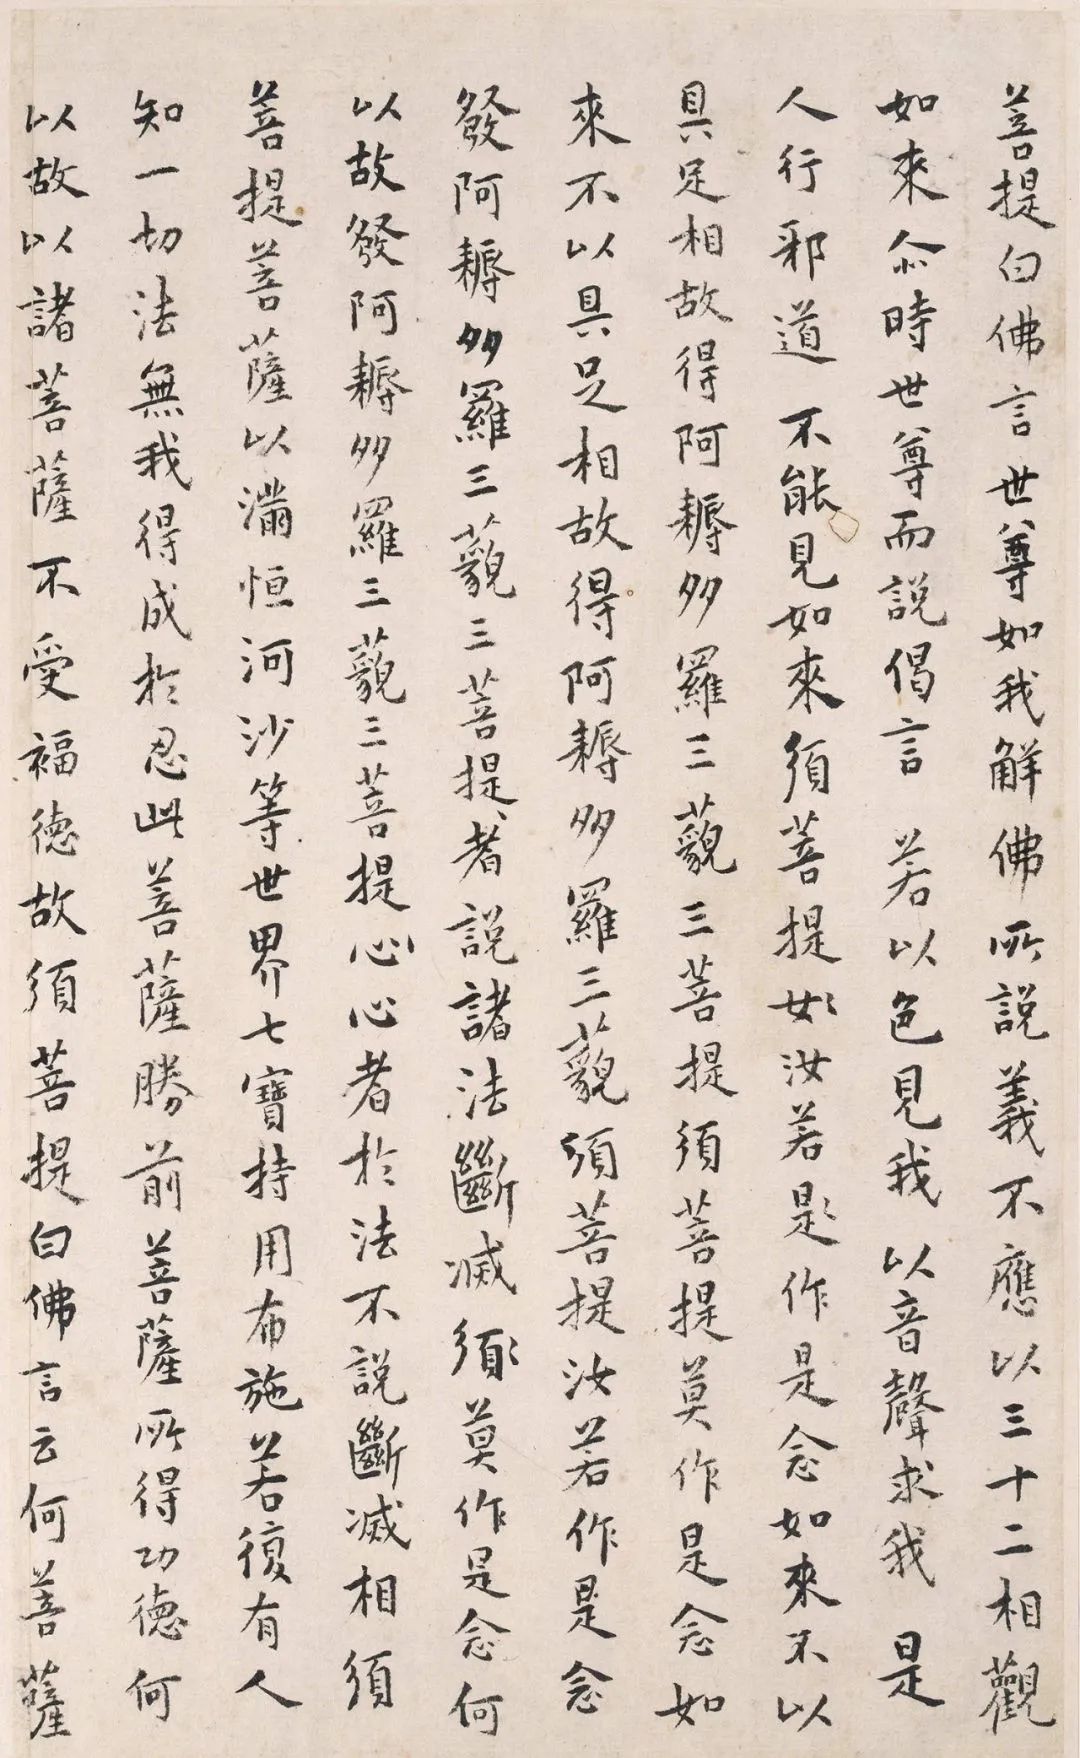 菩提白佛言世尊如我解佛所說義不應以三十二相觀
如來尒時世尊而說偈言 若以色見我 以音聲求我 是
人行邪道 不能見如來須菩提汝若是作是念如來不以
具足相故得阿耨多羅三藐三菩提須菩提莫作是念如
來不以具足相故得阿耨多羅三藐須菩提汝若作是念
發阿耨多羅三藐三菩提者說諸法斷滅須莫作是念何
以故發阿耨多羅三藐三菩提心心者於法不說斷滅相須
菩提菩薩以滿恒河沙等世界七寶持用布施若復有人
知一切法無我得成於忍此菩薩勝前菩薩所得功德何
以故以諸菩薩不受福德故須菩提白佛言云何菩薩